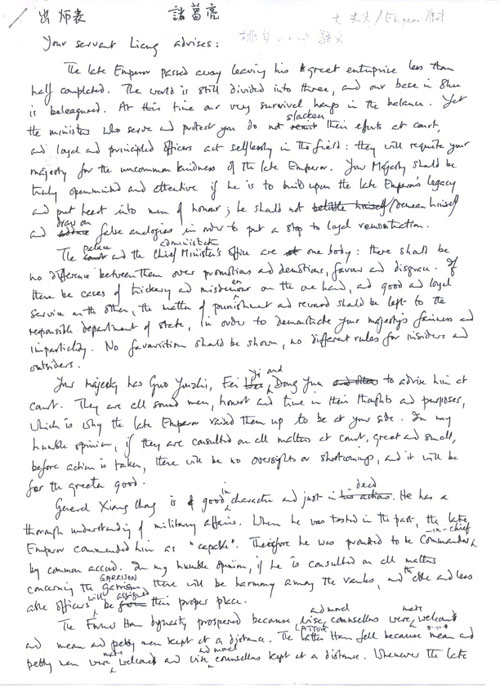 出師表 諸葛亮
Your servant Liang advises:
The late Emperor passed away leaving his great enterprise less than
half completed. The world is still divided into three, and our base in Shu
is beleaguered. At this time our very survival hangs in the balance. Yet
slacken
the ministers who serve and protect you do not resist their efforts at court,
and loyal and principled officers act selflessly in the field: they will requite your
majesty for the uncommon kindness of the late Emperor. Your Majesty should be
truly openminded and attentive if he is to build upon the late Emperor's legacy
and put heart into men of honour; he should not belittle himself/demean himself
draw on
and false analogies in order to put a stop to loyal remonstration.
palace administrate
The court and the Chief Minister's office are one body: there shall be
no difference between them over promotions and demotions, favour and disgrace. If
there be cases of trickery and misdemeanour on the one hand, and good and loyal
service on the other, the matter of punishment and reward shall be left to the
responsible department of state, in order to demonstrate your majesty's fairness and
impartiality. No favouritism should be shown, no different rules for insiders and
outsiders.
Yi and
Your majesty has Guo Youzhi, Fei Dong Yun to advise him at
court. They are all sound men, honest and true in their thoughts and purposes,
which is why the late Emperor raised them up to be at your side. In my
humble opinion, if they are consulted on all matters at court, great and small,
before action is taken, there will be no oversights or shortcomings, and it will be
for the greater good.
in deed
General Xiang Chong is of good character and just in his actions. He has a
thorough understanding of military affairs. When he was tested in the past, the late
in-chief
Emperor commended him as "capable". Therefore he was promoted to be Commander
by common accord. In my humble opinion, if he is consulted on all matters
GARRISON
concerning the garrison, there will be harmony among the ranks, and the able and less
will assigned
able officers be their proper place.
and moral made
The Former Han dynasty prospered because wise counsellors were welcome
LATTER
and mean and petty men kept at a distance. The latter Han fell because mean and
made and moral
petty men were welcomed and wise counsellors kept at a distance. Whenever the late